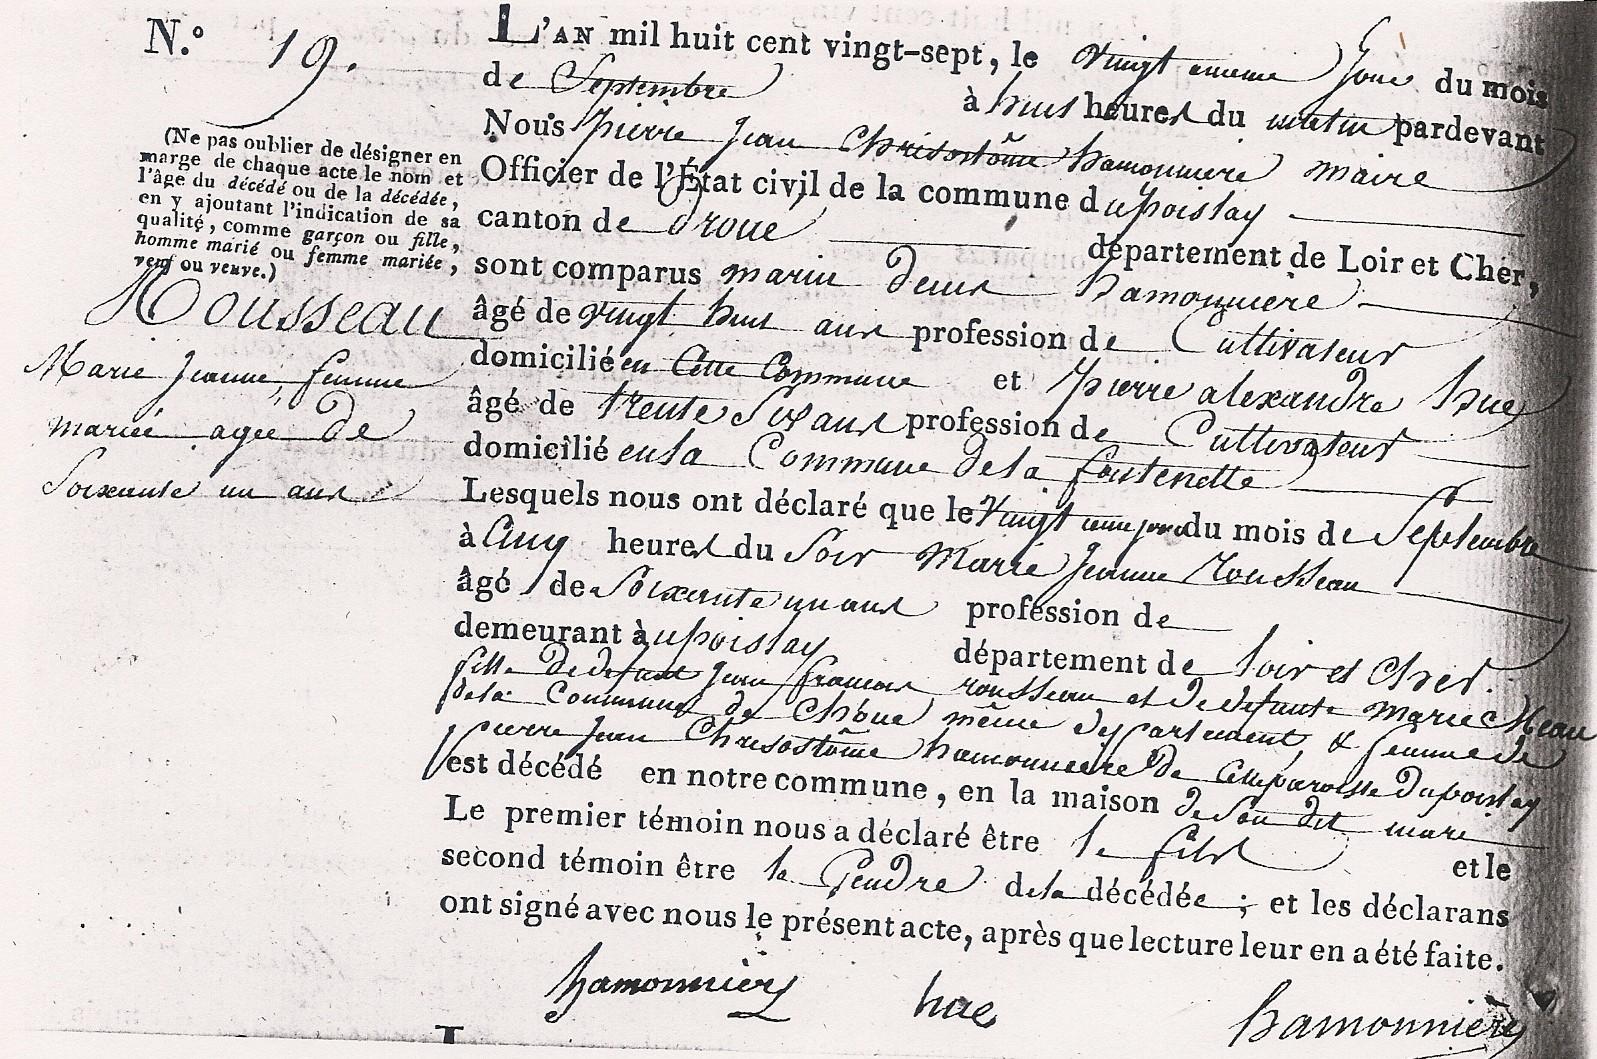 N.º 19.
(Ne pas oublier de désigner en
marge de chaque acte le nom et
l'âge du décédé ou de la décédée,
en y ajoutant l'indication de sa
qualité, comme garçon ou fille,
homme marié ou femme mariée,
veuf ou veuve.)
Rousseau
Marie Jeanne, femme
mariée agee de
Soixante un ans
L'AN mil huit cent vingt-sept, le vingt jour du mois
de Septembre à huit heures du matin pardevant
Nous pierre Jean Chrisostôme hamonniere maire
Officier de l'État civil de la commune dupoislay
canton de Droué département de Loir et Cher,
sont comparus marin denis hamonnière
âgé de vingt huit ans profession de Cultivateur
domicilié en Cette Commune et pierre alexandre hue
âgé de trente Six ans profession de Cultivateur
domicilié en la Commune de la fontenelle
Lesquels nous ont déclaré que le vingt du mois de Septembre
à Cinq heures du Soir Marie Jeanne Rousseau
âgé de Soixante un ans profession de
demeurant à upoislay département de loir et Cher.
fille de défunt Jean francois rousseau et de defunte Marie
de la Commune de Chôue même departement, & femme de
pierre Jean Chrisostôme hamonniere de Cette paroisse dupoislay
est décédé en notre commune, en la maison de Son dit mari
Le premier témoin nous a déclaré être le fils et le
second témoin être le Gendre de la décédée ; et les déclarans
ont signé avec nous le présent acte, après que lecture leur en a été faite.
hamonnière hue hamonnière